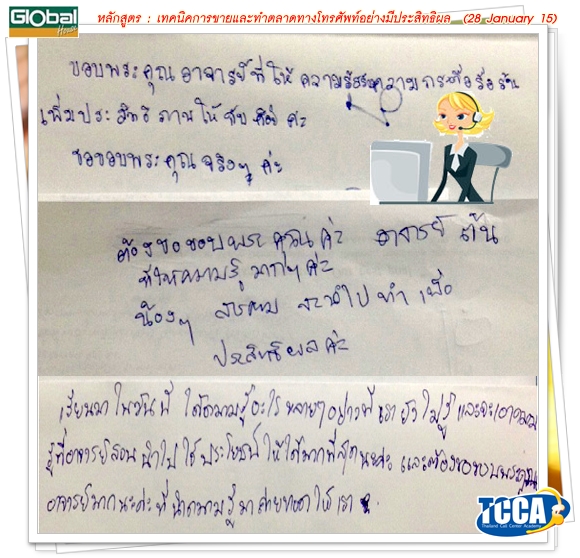 Global
House
หลักสูตร : เทคนิคการขายและทำตลาดทางโทรศัพท์อย่างมีประสิทธิผล (28 January 15)
ขอบพระคุณ อาจารย์ ที่ให้ ความรู้ ความ กระตือรือร้น
เพิ่มประสิทธิภาพให้กับ ค่ะ
ขอขอบพระคุณจริงๆ ค่ะ
ต้องขอขอบพระคุณค่ะ อาจารย์ ต้น
ที่ให้ความรู้ มากๆ ค่ะ
น้องๆ สามารถ จะนำไป ทำ เพื่อ
ประสิทธิผลค่ะ
เรียนมาในวันนี้ ได้ความรู้อะไร หลายๆอย่างที่เรายังไม่รู้ และจะเอาความ
รู้ที่อาจารย์สอน นำไปใช้ประโยชน์ให้ได้มากที่สุดนะคะ และต้องขอขอบพระคุณ
อาจารย์มากนะคะที่นำความรู้มาถ่ายทอดให้เรา
TCCA
Thailand Call Center Academy